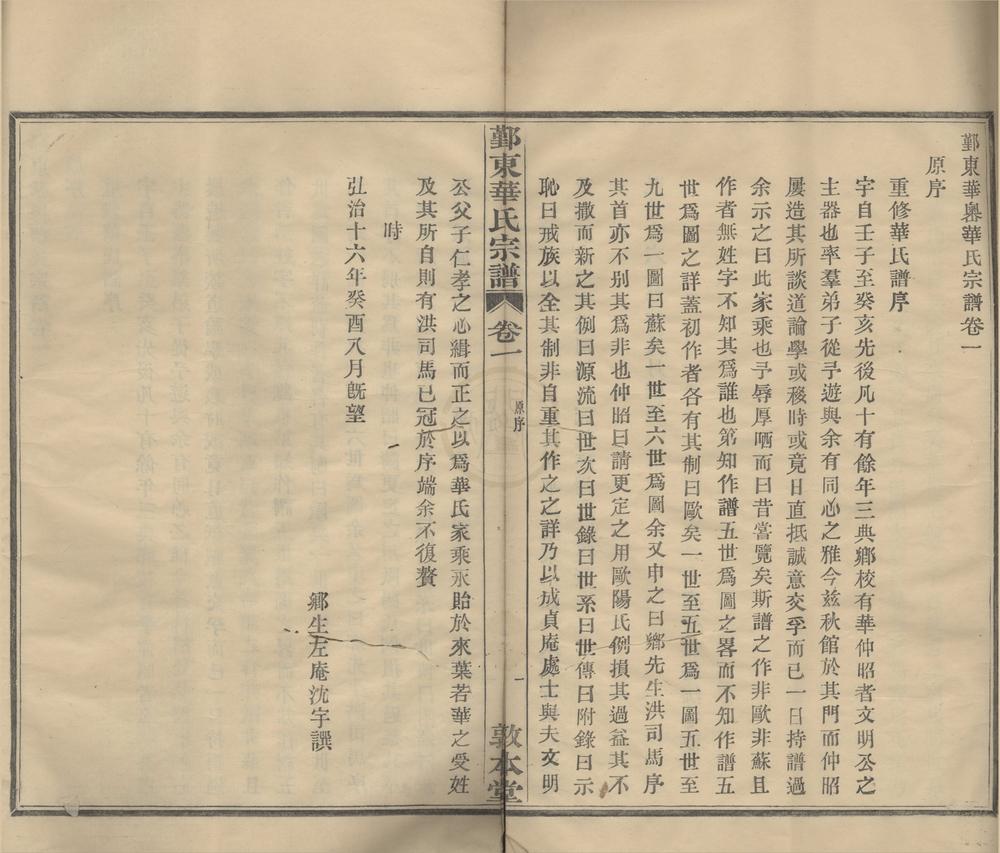 鄞東華嶴華氏宗譜卷一
原序
重修華氏譜序
宇自壬子至癸亥先後凡十有餘年三典鄉校有華仲昭者文明公之
主器也率羣弟子從予遊與余有同心之雅今茲秋館於其門而仲昭
屢造其所談道論學或移時或竟日直抵誠意交孚而已一日持譜過
余示之曰此家乘也予辱厚哂而曰昔嘗覽矣斯譜之作非歐非蘇且
作者無姓字不知其為誰也第知作譜五世為圖之畧而不知作譜五
世爲圖之詳葢初作者各有其制曰歐矣一世至五世爲一圖五世至
九世爲一圖曰蘇矣一世至六世爲圖余又申之曰鄉先生洪司馬序
其首亦不别其爲非也仲昭曰請更定之用歐陽氏例損其過益其不
及撒而新之其例曰源流曰世次曰世錄曰世系曰世傳曰附錄曰示
恥曰戒族以全其制非自重其作之之詳乃以成貞庵處士與夫文明
鄞東華氏宗譜
卷一
原序
一
敦本堂
公父子仁孝之心緝而正之以爲華氏家乘永貽於來葉若華之受姓
及其所自則有洪司馬已冠於序端余不復贅
時
弘治十六年癸酉八月旣望
鄉生左庵沈宇譔